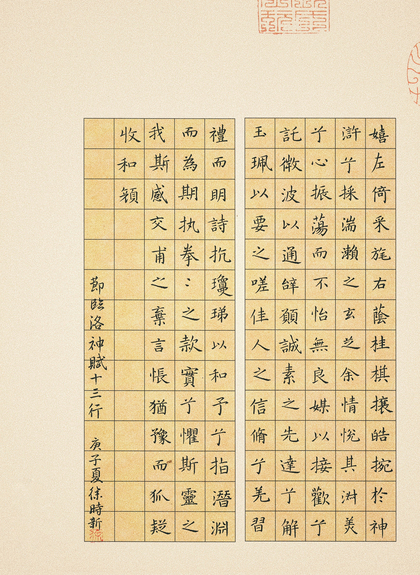 嬉左倚采旄右蔭桂棋攘皓捥於神
滸兮採湍瀨之玄芝余情悅其淑美
兮心振蕩而不怡無良媒以接歡兮
託微波以通辝願誠素之先達兮解
玉珮以要之嗟佳人之信脩兮羌習
禮而明詩抗瓊珶以和予兮指潛淵
而為期执拳〻之款實兮懼斯靈之
我斯感交甫之棄言悵猶豫而狐疑
收和穎
節臨洛神賦十三行 庚子夏徐時新